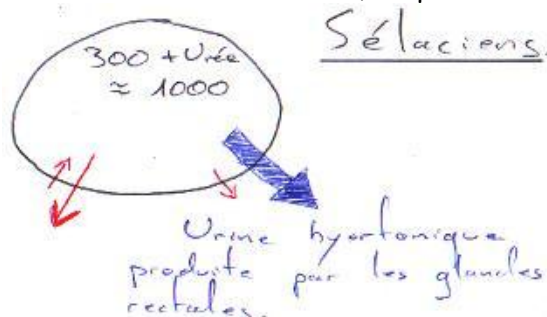 Sélaciens.
300 + Urée
≈ 1000
Urine hyertonique
produite par les glandes
rectales.